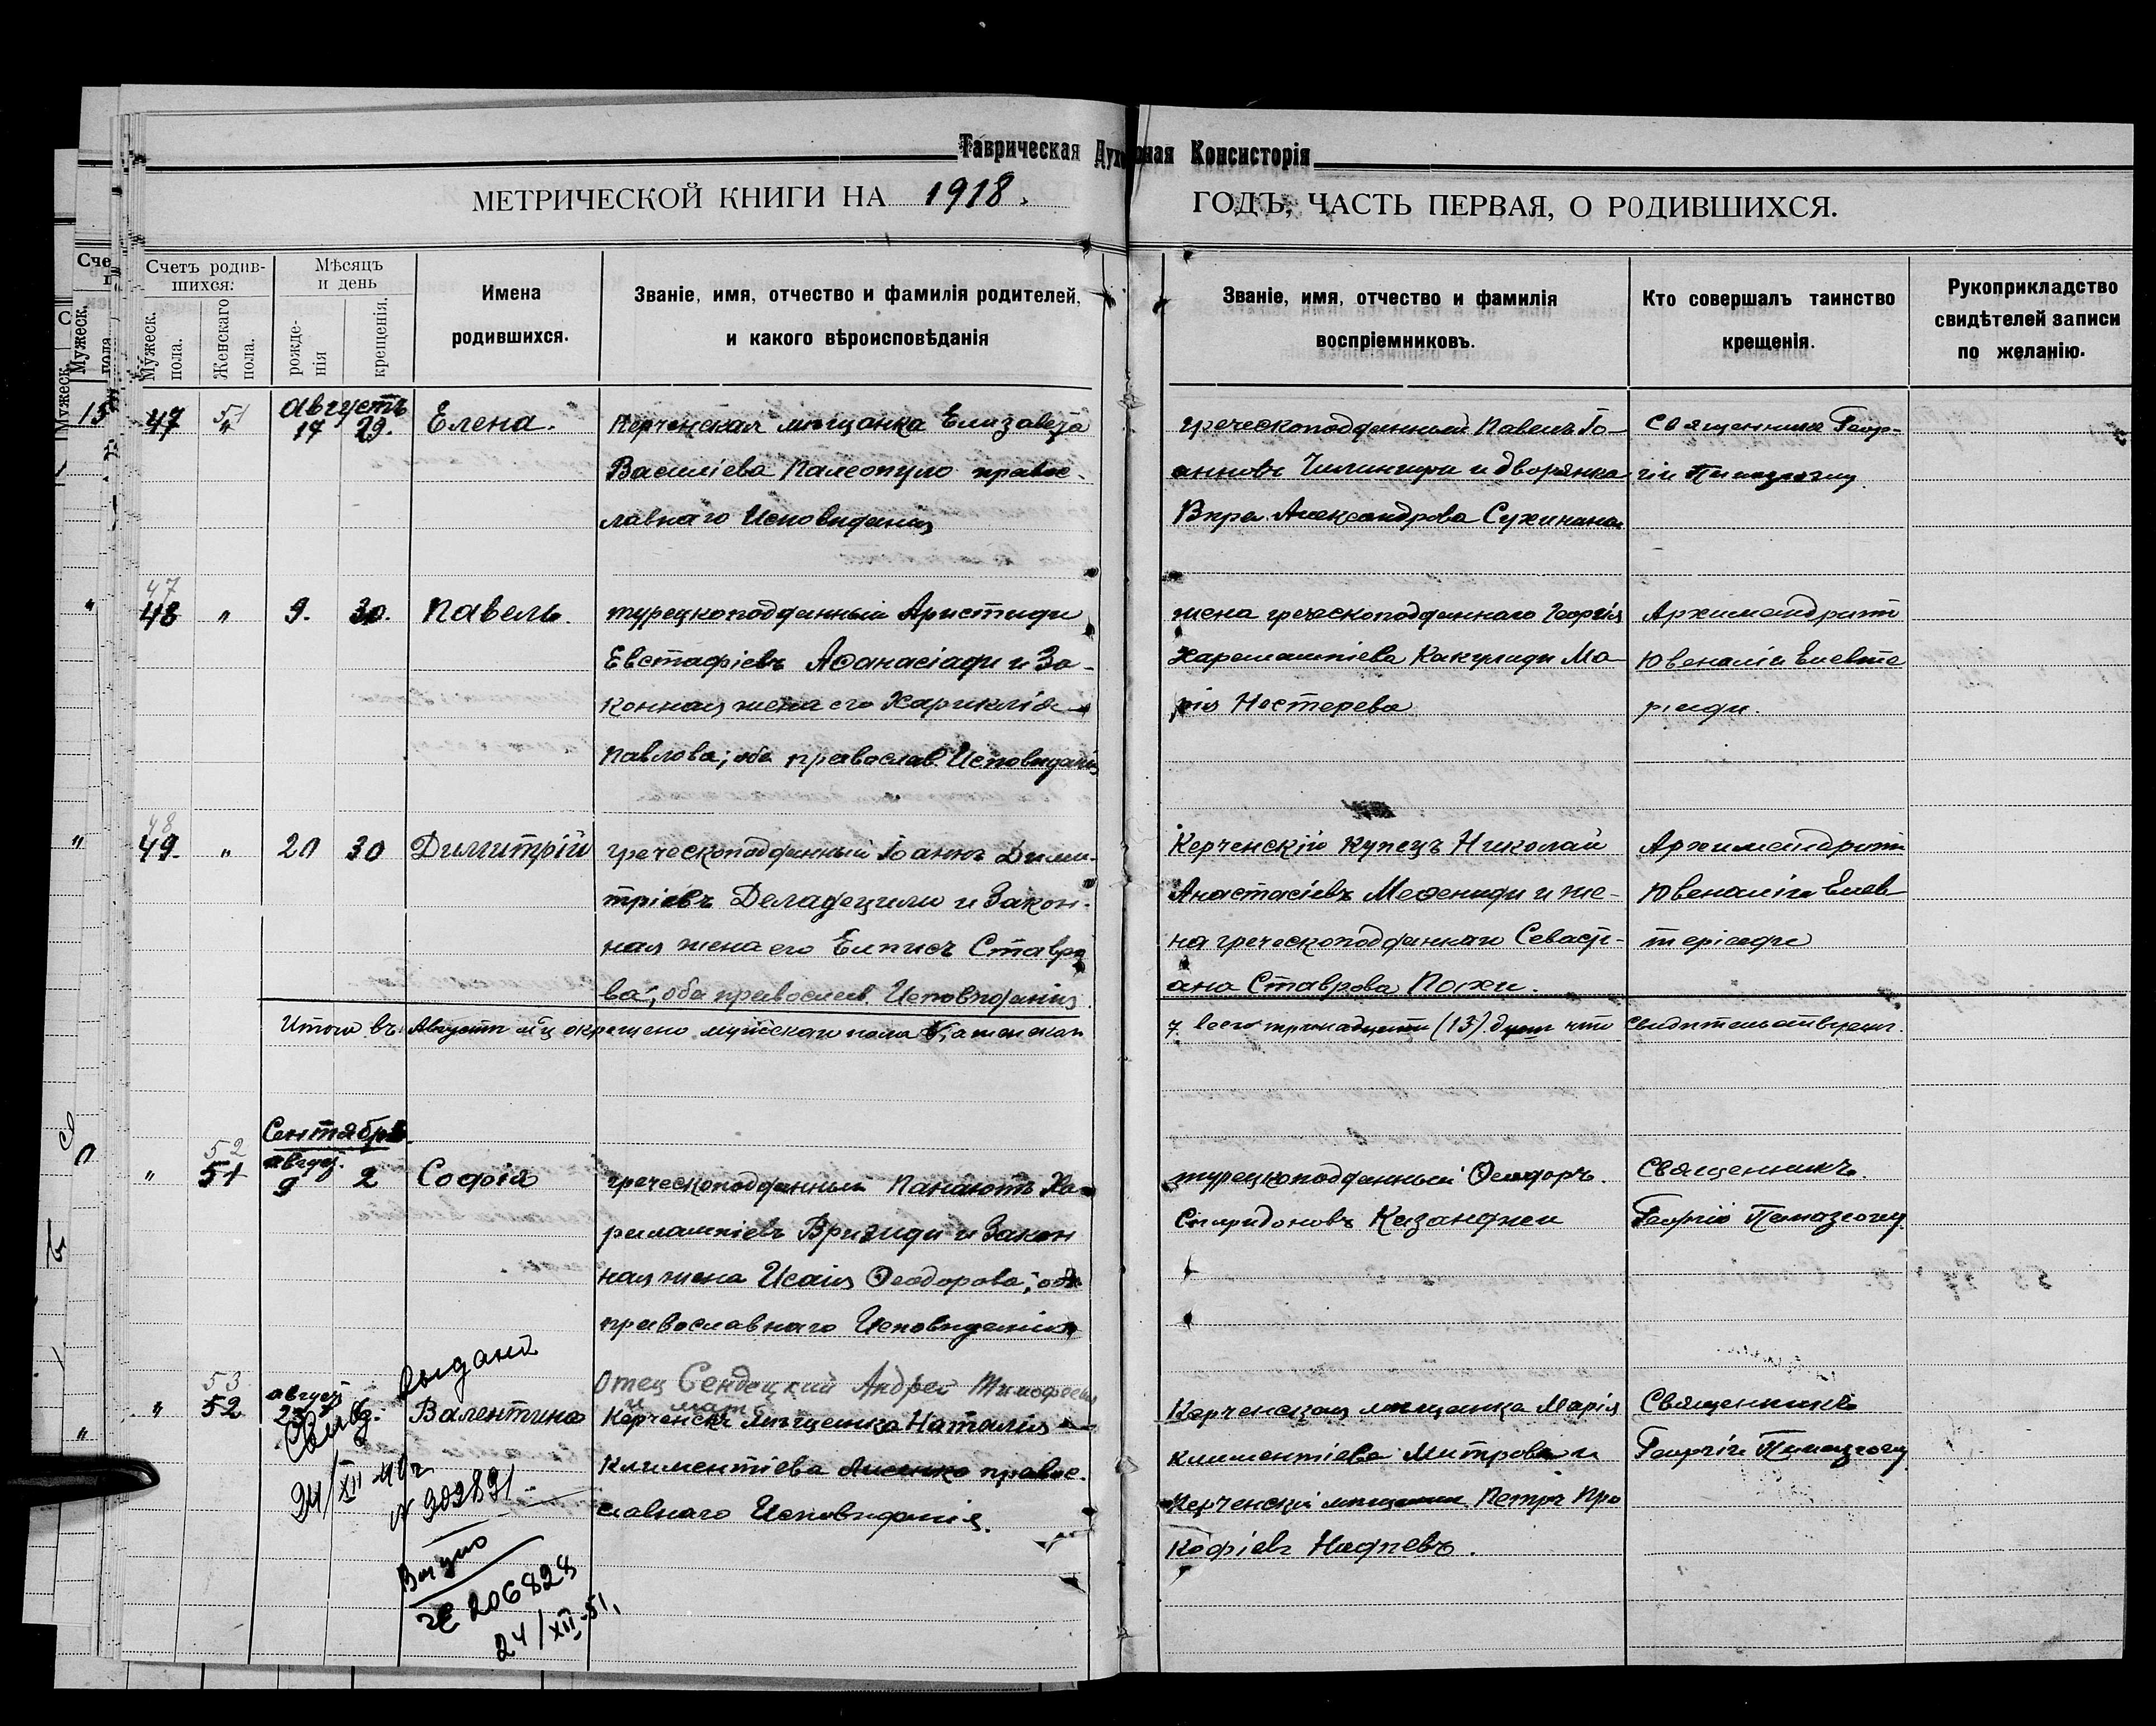 Таврическая Духовная Консисторія
МЕТРИЧЕСКОЙ КНИГИ НА 1918. ГОДЪ, ЧАСТЬ ПЕРВАЯ, О РОДИВШИХСЯ.
Счетъ родив-
шихся:
Мужеск.
пола.
Женскаго
пола.
Мѣсяцъ
и день
рожде-
нія
крещенія.
Имена
родившихся.
Званіе, имя, отчество и фамилія родителей,
и какого вѣроисповѣданія
Званіе, имя, отчество и фамилія
воспріемниковъ.
Кто совершалъ таинство
крещенія.
Рукоприкладство
свидѣтелей записи
по желанію.
Августъ
47 51 " 17 29. Елена.
Керченская мѣщанка Елизавета
Василіева Палеопуло правос-
лавнаго Исповѣданія
греческоподданный Павелъ Іо-
анновъ Чилингири и дворянка
Вѣра Александрова Сухинана
Священникъ Геор-
гій
47
48 " 9. 30. Павелъ.
турецкоподданный Аристиди
Евстафіевъ Аѳанасіади и За-
конная жена его Хариклія
Павлова; оба православ. Исповѣданія
жена греческоподданнаго Георгія
Харалампіева Какулиди Ма-
рія Нестерова
Архимандритъ
Ювеналій Елевте
ріади.
48
49. " 20 30 Димитрій
греческоподданный Іоаннъ Дими-
тріевъ Деладецили и Закон-
ная жена его Елписъ Ставро
ва; оба православ. Исповѣданія.
Керченскій купецъ Николай
Анастасіевъ Меѳениди и же-
на греческоподданнаго Севасті-
ана Ставрова Пахи.
Архимандритъ
Ювеналій Елев
теріади
Итого въ Августѣ м-цѣ окрещено мужскаго пола 6, а женскаго
7 всего тринадцать (13) душъ что свидѣтельствуемъ.
Сентябрь
52
" 51 август. 9 2 Софія
греческоподданный Панаіотъ Ха-
рилампіевъ Вризиди и Закон
ная жена Исаія Ѳеодорова; оба
православнаго Исповѣданія
турецкоподданный Ѳеодоръ.
Спиридоновъ Казанджи
Священникъ.
Георгій
53
" 52 август 23 Валентина
Выдано
Свид.
24/XII 40г.
№ 302891
Выдано
206828
24/XII-51.
Отец Сендецкий Андрей Тимофеевич
и мать
Керченск. мѣщанка Наталія
Климентіева Лисенко правос-
лавнаго Исповѣданія.
Керченская мѣщанка Марія
Климентіева Митрова и
Керченскій мѣщанинъ Петръ Про
кофіевъ
Священникъ
Георгій